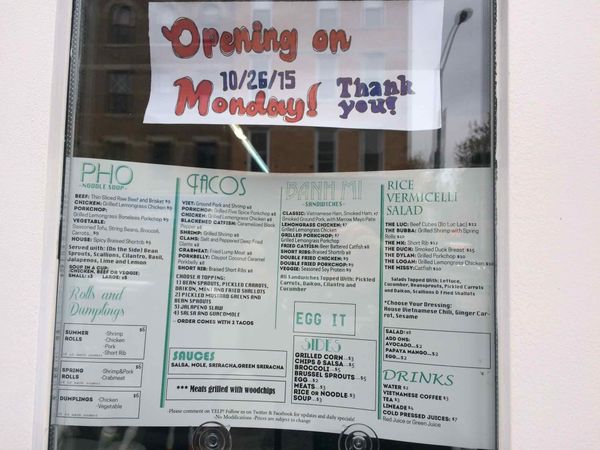 Opening on
10/26/15
Monday!
Thank
you!
PHO
-NOODLE SOUP-
BEEF: Thin Sliced Raw Beef and Brisket $9
CHICKEN: Grilled Lemongrass Chicken $9
PORKCHOP:
Grilled Lemongrass Boneless Porkchop $9
VEGETABLE:
Seasoned Tofu, String Beans, Broccoli,
Carrots, $9
HOUSE: Spicy Braised Shortrib $9
Served with: (On the Side) Bean
Sprouts, Scallions, Cilantro, Basil,
Jalapenos, Lime and Lemon
CHICKEN, BEEF OR VEGGIE:
Rolls and
Dumplings
SUMMER
ROLLS
-Shrimp
-Chicken
-Pork
-Short Rib
$6
SPRING
ROLLS
-Shrimp&Pork
-Crabmeat
$6
DUMPLINGS
-Chicken
-Vegetable
$6
TACOS
VIET: Ground Pork and Shrimp $8
PORKCHOP: Grilled Five Spice Porkchop $8
CHICKEN: Grilled Lemongrass Chicken $8
BLACKENED CATFISH: Caramelized Black
Pepper $8
SHRIMP: Grilled Shrimp $8
CLAMS: Salt and Peppered Deep Fried
Clams $8
CRABMEAT: Fried Lump Meat $8
PORKBELLY: Claypot Cooked Caramel
Porkbelly $8
SHORT RIB: Braised Short Rib $8
CHOOSE A TOPPING:
1) BEAN SPROUTS, PICKLED CARROTS,
DAIKON, MINT AND FRIED SHALLOTS
2) PICKLED MUSTARD GREENS AND
BEAN SPROUTS
3) JALAPENO SLAW
4) SALSA AND GUACAMOLE
ORDER COMES WITH 2 TACOS
SAUCES
SALSA, MOLE, SRIRACHA, GREEN SRIRACHA
*** Meats grilled with woodchips
BANH MI
-SANDWICHES-
CLASSIC: Vietnamese Ham, Smoked Ham,
Smoked Ground Pork, with Marrow Mayo Pate
LEMONGRASS CHICKEN: $7
Grilled Lemongrass Chicken
GRILLED PORKCHOP: $7
Grilled Lemongrass Porkchop
FRIED CATFISH: Beer Battered Catfish $8
SHORT RIBS: Braised Shortrib $8
DOUBLE FRIED CHICKEN: $9
DOUBLE FRIED PORKCHOP: $9
VEGGIE: Seasoned Soy Protein $6
All Sandwiches Topped With: Pickled
Carrots, Daikon, Cilantro and
Cucumber
EGG IT
SIDES
GRILLED CORN...$3
CHIPS & SALSA...$5
BROCCOLI ...$5
BRUSSEL SPROUTS...$5
EGG...$2
MEATS...$5
RICE OR NOODLE $3
SOUP...$3
RICE
VERMICELLI
SALAD
THE LUC: Beef Cubes (Bo Luc Lac) $13
THE BUBBA: Grilled Shrimp with Spring
Rolls $13
THE MO: Short Rib $13
THE DUCK: Smoked Duck Breast $15
THE DYLAN: Grilled Porkchop $10
THE LOGAN: Grilled Lemongrass Chicken $10
THE MISSY: Catfish $10
Salads Topped With: Lettuce,
Cucumber, Beansprouts, Pickled Carrots
and Daikon, Scallions & Fried Shallots
*Choose Your Dressing:
House Vietnamese Chili, Ginger Car-
rot, Sesame
SALAD: $8
ADD ONS:
AVOCADO...$2
PAPAYA MANGO...$2
EGG...$2
DRINKS
WATER $2
VIETNAMESE COFFEE $3
TEA...$3
LIMEADE $4
COLD PRESSED JUICES: $7
Red Juice or Green Juice
Please comment on YELP! Follow us on Twitter & Facebook for updates and daily specials!
-No Modifications -Prices are subject to change